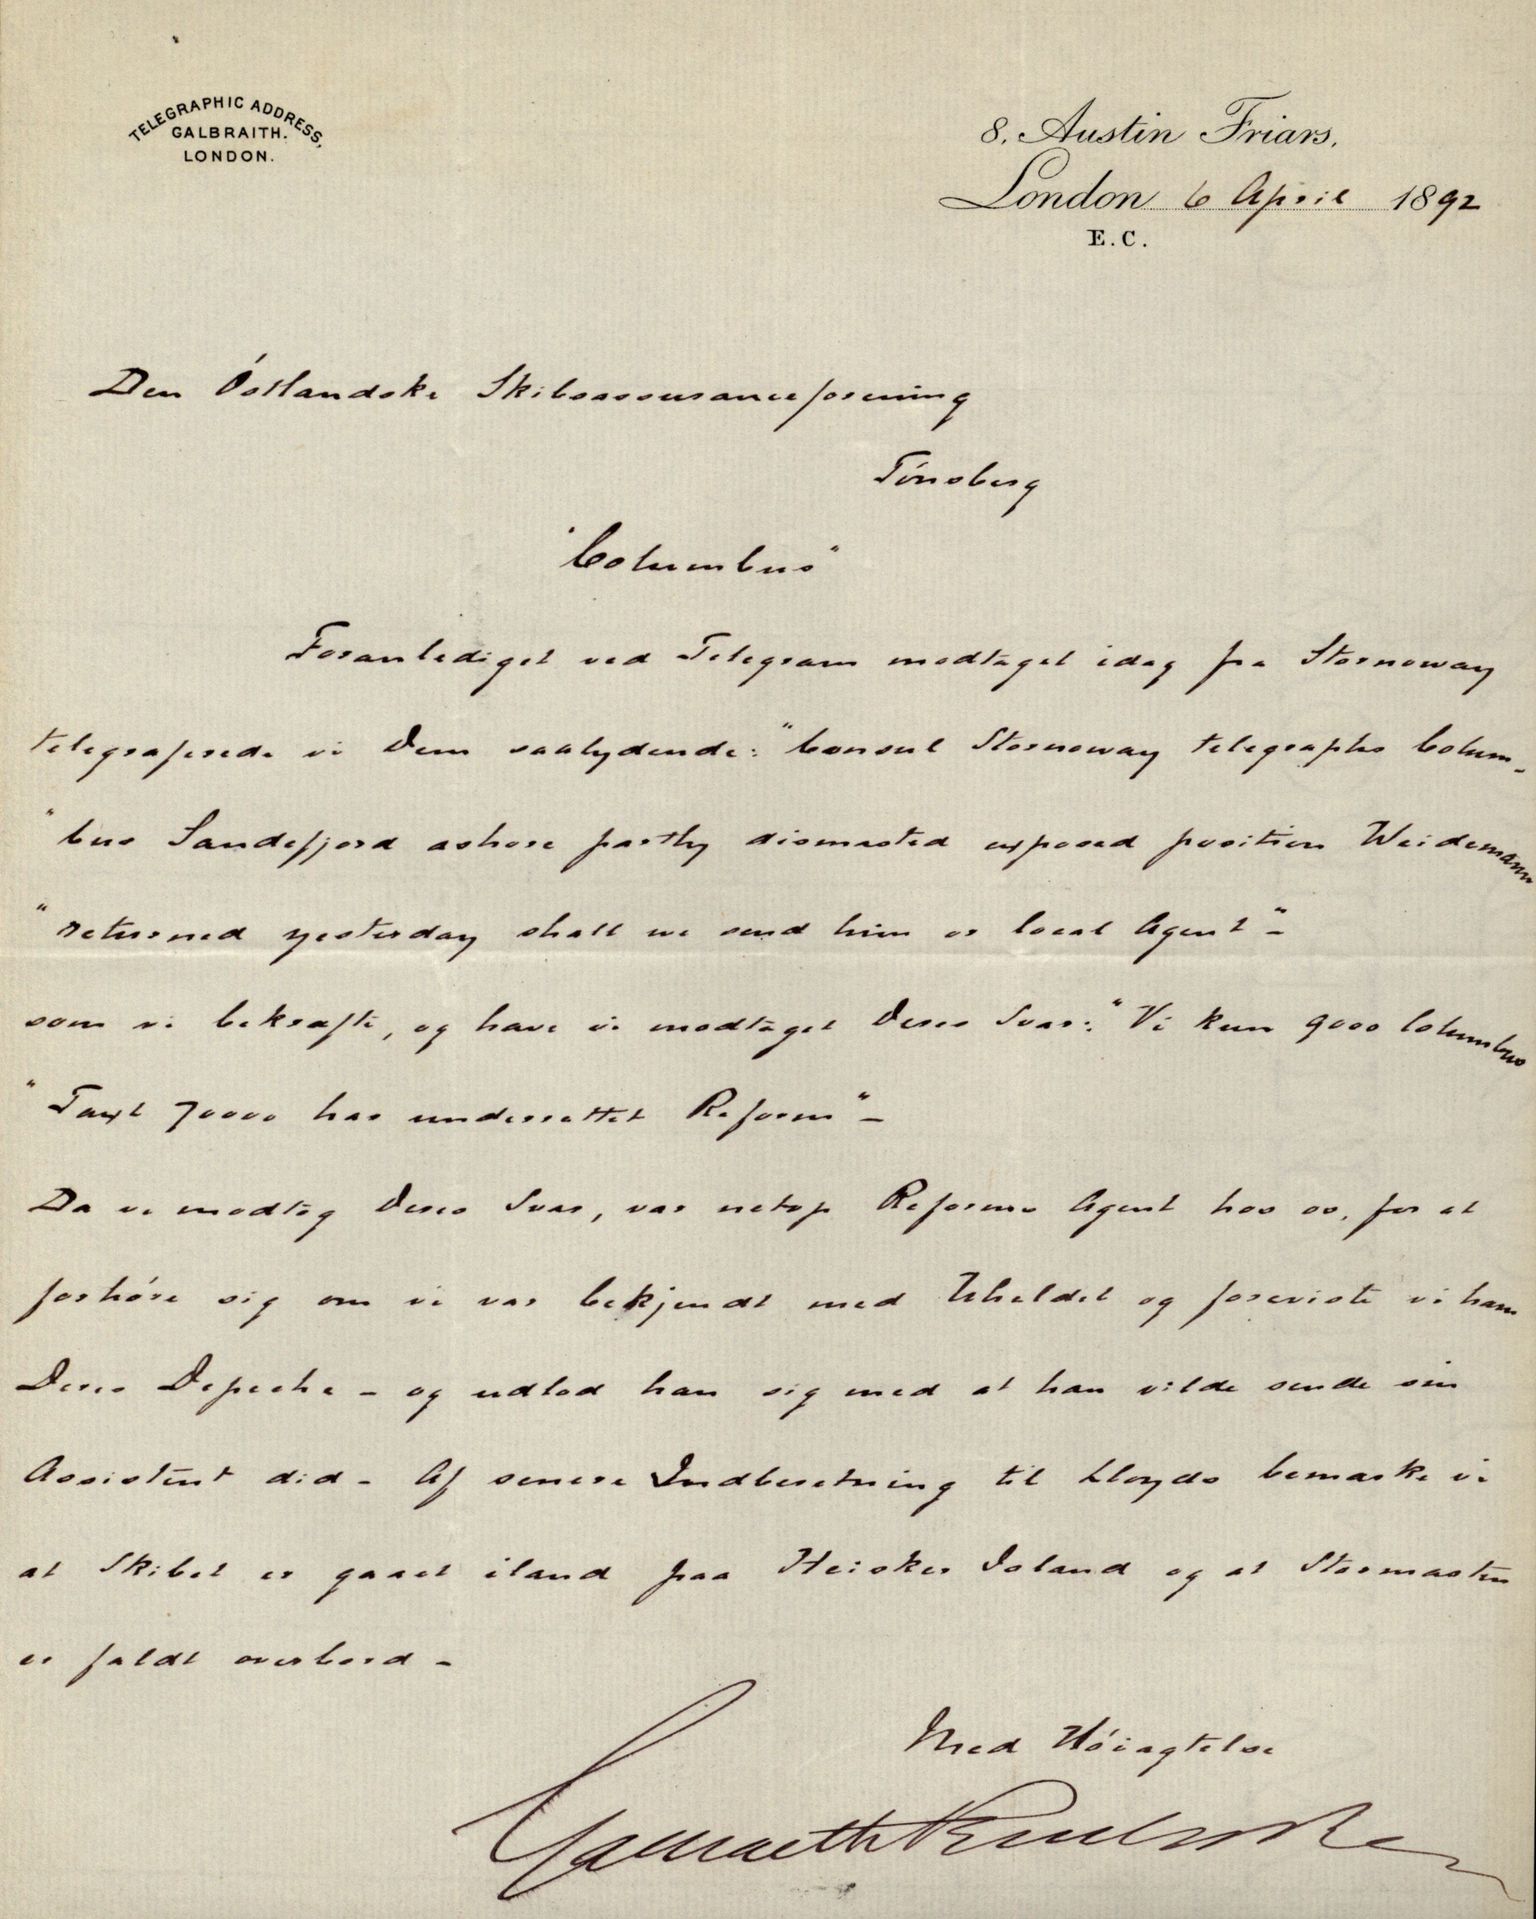 TELEGRAPHIC ADDRESS,
GALBRAITH.
LONDON.
8, Austin Friars,
London 6 April 1892
E.C.
Den Óstlandske Skibsassuranceforening
Tónsberg
"Columbus"
Foranlediget ved Telegram modtaget idag fra Stornoway
telegraferede vi Dem saalydende: "Consul Stornoway telegraphs Colum-
"bus Sandefjord ashore partly dismasted exposed position Weidemann
"returned yesterday shall we send him or local Agent" -
som vi bekræfte, og have vi modtaget Deres Svar: "Vi kun 9000 Columbus
"Taxt 70000 har underrettet Reform" -
Da vi modtog Deres Svar, var netop Reforms Agent hos os, for at
forhóre sig om vi var bekjendt med Uheldet og foreviste vi ham
Deres Depeche - og udlod han sig med at han vilde sende sin
Assistent did - Af senere Indberetning til Lloyds bemærke vi
at Skibet er gaaet iland paa Heisker Island og at Stormasten
er faldt overbord -
Med Hóiagtelse
Galbraith